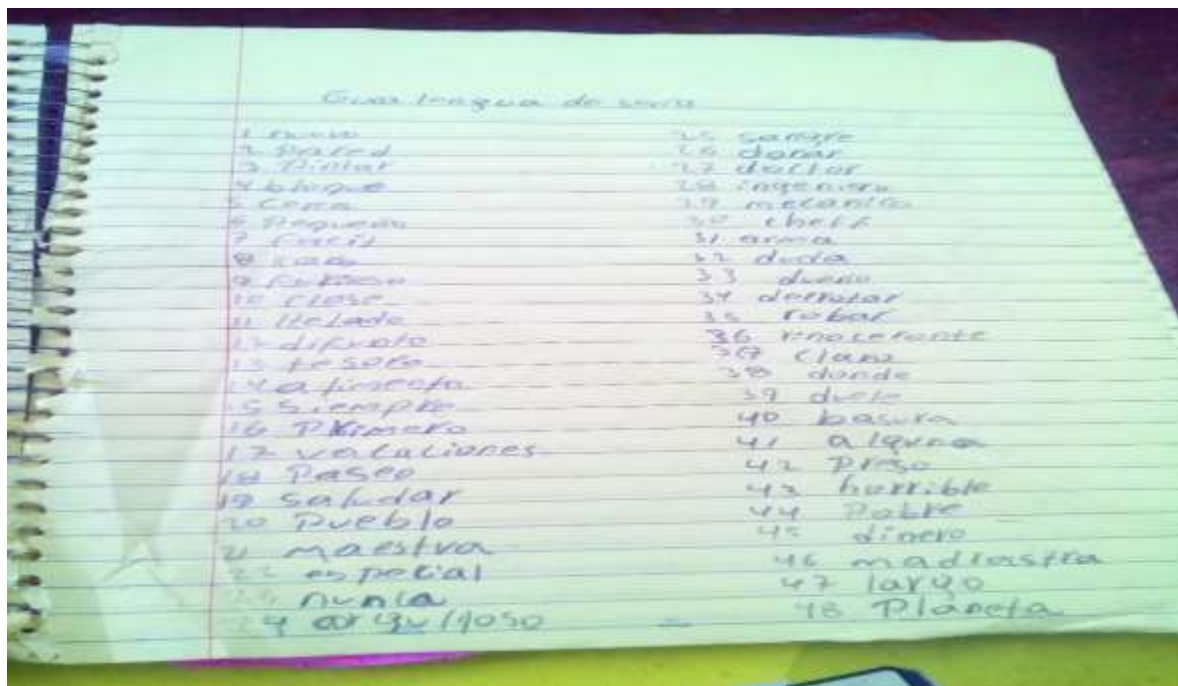 Guia lengua de seña
1 nuevo
2 Pared
3 Pintar
4 bloque
5 Cerca
6 Pequeño
7 Facil
8
9 furioso
10 clase
11 Helado
12
13 tesoro
14 alimento
15 Siempre
16 Primero
17 vacaciones
18 Paseo
19 Saludar
20 Pueblo
21 maestra
22 especial
23 nunca
24 orgulloso
25 sangre
26 donar
27 doctor
28 ingeniero
29 mecanico
30 cheff
31 arma
32 duda
33 dueño
34 derrotar
35 robar
36 rinoceronte
37 claro
38 donde
39 duele
40 basura
41 alguna
42 Preso
43 horrible
44 Pobre
45 dinero
46 madrastra
47 largo
48 Planeta